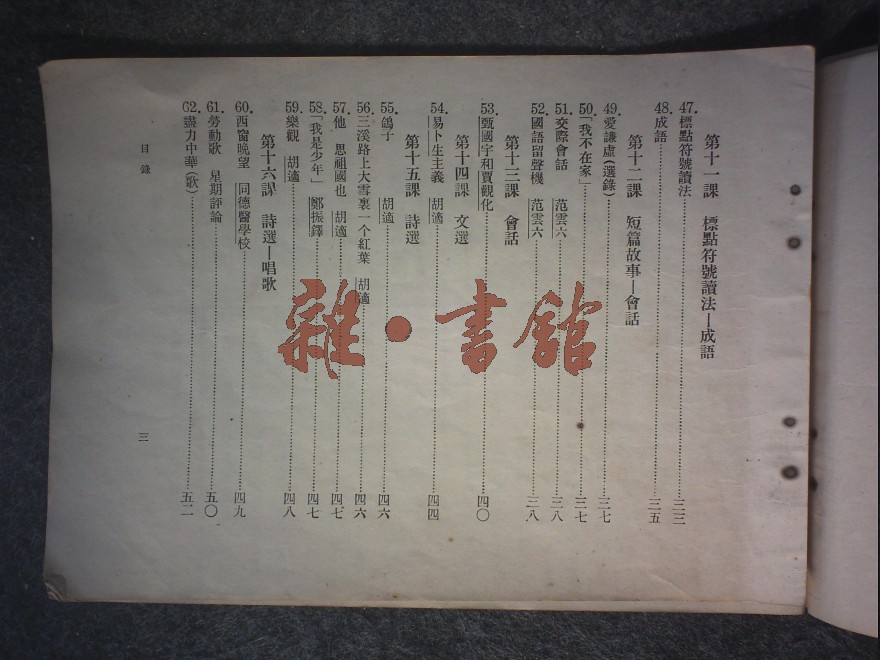 第十一課　標點符號讀法—成語
47. 標點符號讀法……三三
48. 成語……三五
第十二課　短篇故事—會話
49. 愛謙虛(選錄)……三七
50.「我不在家」……三七
51. 交際會話　范雲六……三八
52. 國語留聲機　范雲六……三八
第十三課　會話
53. 甄國宇和賈觀化……四〇
第十四課　文選
54. 易卜生主義　胡適……四四
第十五課　詩選
55. 鴿子　胡適……四六
56. 三溪路上大雪裏一个紅葉　胡適……四六
57. 他　思祖國也　胡適……四七
58.「我是少年」　鄭振鐸……四七
59. 樂觀　胡適……四八
第十六課　詩選—唱歌
60. 西窗晚望　同德醫學校……四九
61. 勞動歌　星期評論……五〇
62. 盡力中華(歌)……五二
目錄
三
雜·書館